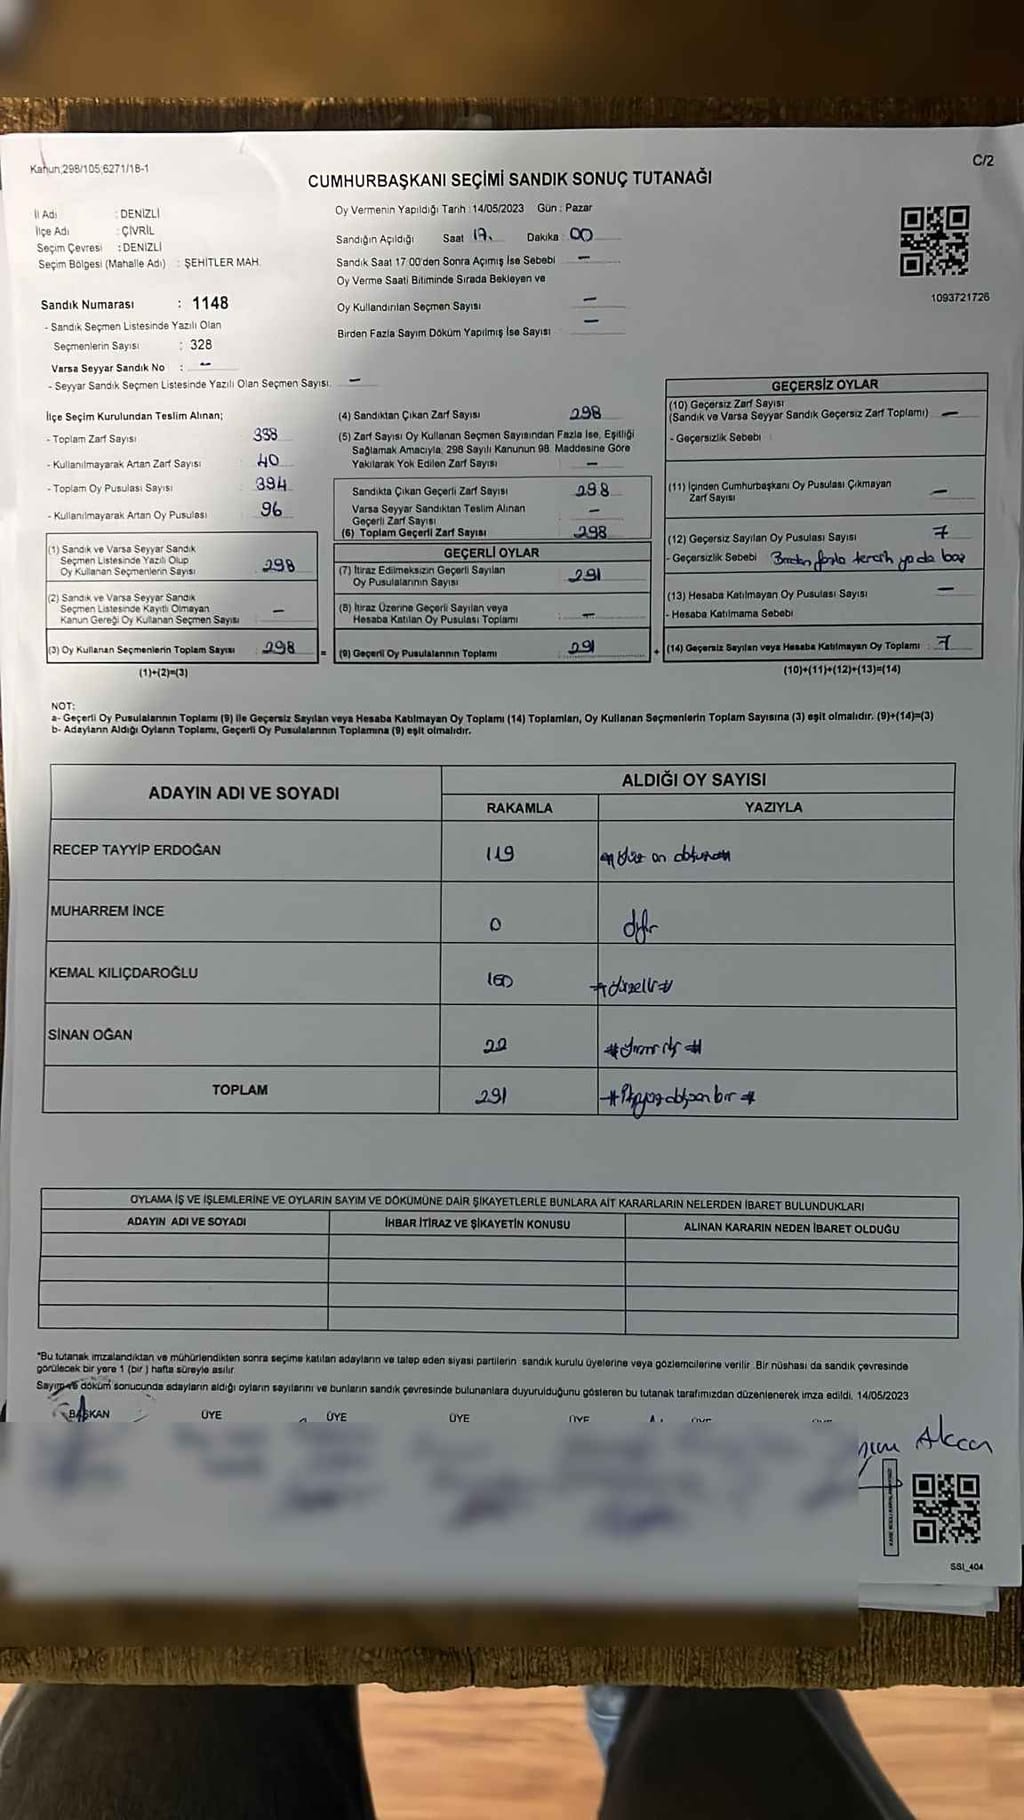 Kanun;298/105;6271/18-1
C/2
CUMHURBAŞKANI SEÇİMİ SANDIK SONUÇ TUTANAĞI
İl Adı : DENİZLİ
İlçe Adı : ÇİVRİL
Seçim Çevresi : DENİZLİ
Seçim Bölgesi (Mahalle Adı) : ŞEHİTLER MAH.
Oy Vermenin Yapıldığı Tarih :14/05/2023 Gün : Pazar
Sandığın Açıldığı Saat 17. Dakika : 00
Sandık Saat 17:00'den Sonra Açımış İse Sebebi –
Oy Verme Saati Bitiminde Sırada Bekleyen ve
Oy Kullandırılan Seçmen Sayısı –
Birden Fazla Sayım Döküm Yapılmış İse Sayısı –
1093721726
Sandık Numarası : 1148
- Sandık Seçmen Listesinde Yazılı Olan
Seçmenlerin Sayısı : 328
Varsa Seyyar Sandık No : –
- Seyyar Sandık Seçmen Listesinde Yazılı Olan Seçmen Sayısı. –
İlçe Seçim Kurulundan Teslim Alınan;
- Toplam Zarf Sayısı 338
- Kullanılmayarak Artan Zarf Sayısı 40
- Toplam Oy Pusulası Sayısı 394
- Kullanılmayarak Artan Oy Pusulası 96
(1) Sandık ve Varsa Seyyar Sandık
Seçmen Listesinde Yazılı Olup
Oy Kullanan Seçmenlerin Sayısı 298
(2) Sandık ve Varsa Seyyar Sandık
Seçmen Listesinde Kayıtlı Olmayan
Kanun Gereği Oy Kullanan Seçmen Sayısı –
(3) Oy Kullanan Seçmenlerin Toplam Sayısı : 298 =
(1)+(2)=(3)
(4) Sandıktan Çıkan Zarf Sayısı 298
(5) Zarf Sayısı Oy Kullanan Seçmen Sayısından Fazla İse, Eşitliği
Sağlamak Amacıyla, 298 Sayılı Kanunun 98. Maddesine Göre
Yakılarak Yok Edilen Zarf Sayısı –
Sandıkta Çıkan Geçerli Zarf Sayısı 298
Varsa Seyyar Sandıktan Teslim Alınan
Geçerli Zarf Sayısı –
(6) Toplam Geçerli Zarf Sayısı 298
GEÇERLİ OYLAR
(7) İtiraz Edilmeksizin Geçerli Sayılan
Oy Pusulalarının Sayısı 291
(8) İtiraz Üzerine Geçerli Sayılan veya
Hesaba Katılan Oy Pusulası Toplamı –
(9) Geçerli Oy Pusulalarının Toplamı 291 +
GEÇERSİZ OYLAR
(10) Geçersiz Zarf Sayısı
(Sandık ve Varsa Seyyar Sandık Geçersiz Zarf Toplamı) –
- Geçersizlik Sebebi
(11) İçinden Cumhurbaşkanı Oy Pusulası Çıkmayan
Zarf Sayısı –
(12) Geçersiz Sayılan Oy Pusulası Sayısı 7
- Geçersizlik Sebebi Birden fazla tercih ya da boş
(13) Hesaba Katılmayan Oy Pusulası Sayısı –
- Hesaba Katılmama Sebebi
(14) Geçersiz Sayılan veya Hesaba Katılmayan Oy Toplamı : 7
(10)+(11)+(12)+(13)=(14)
NOT:
a- Geçerli Oy Pusulalarının Toplamı (9) ile Geçersiz Sayılan veya Hesaba Katılmayan Oy Toplamı (14) Toplamları, Oy Kullanan Seçmenlerin Toplam Sayısına (3) eşit olmalıdır. (9)+(14)=(3)
b- Adayların Aldığı Oyların Toplamı, Geçerli Oy Pusulalarının Toplamına (9) eşit olmalıdır.
ADAYIN ADI VE SOYADI ALDIĞI OY SAYISI
RAKAMLA YAZIYLA
RECEP TAYYİP ERDOĞAN 119 # Yüz on dokuz #
MUHARREM İNCE 0 sıfır
KEMAL KILIÇDAROĞLU 150 # Yüzelli #
SİNAN OĞAN 22 # Yirmi iki #
TOPLAM 291 # İkiyüzdoksan bir #
OYLAMA İŞ VE İŞLEMLERİNE VE OYLARIN SAYIM VE DÖKÜMÜNE DAİR ŞİKAYETLERLE BUNLARA AİT KARARLARIN NELERDEN İBARET BULUNDUKLARI
ADAYIN ADI VE SOYADI İHBAR İTİRAZ VE ŞİKAYETİN KONUSU ALINAN KARARIN NEDEN İBARET OLDUĞU
*Bu tutanak imzalandıktan ve mühürlendikten sonra seçime katılan adayların ve talep eden siyasi partilerin sandık kurulu üyelerine veya gözlemcilerine verilir. Bir nüshası da sandık çevresinde
görülecek bir yere 1 (bir ) hafta süreyle asılır.
Sayım ve döküm sonucunda adayların aldığı oyların sayılarını ve bunların sandık çevresinde bulunanlara duyurulduğunu gösteren bu tutanak tarafımızdan düzenlenerek imza edildi. 14/05/2023
BAŞKAN ÜYE ÜYE ÜYE ÜYE
Akcan
SSI_404